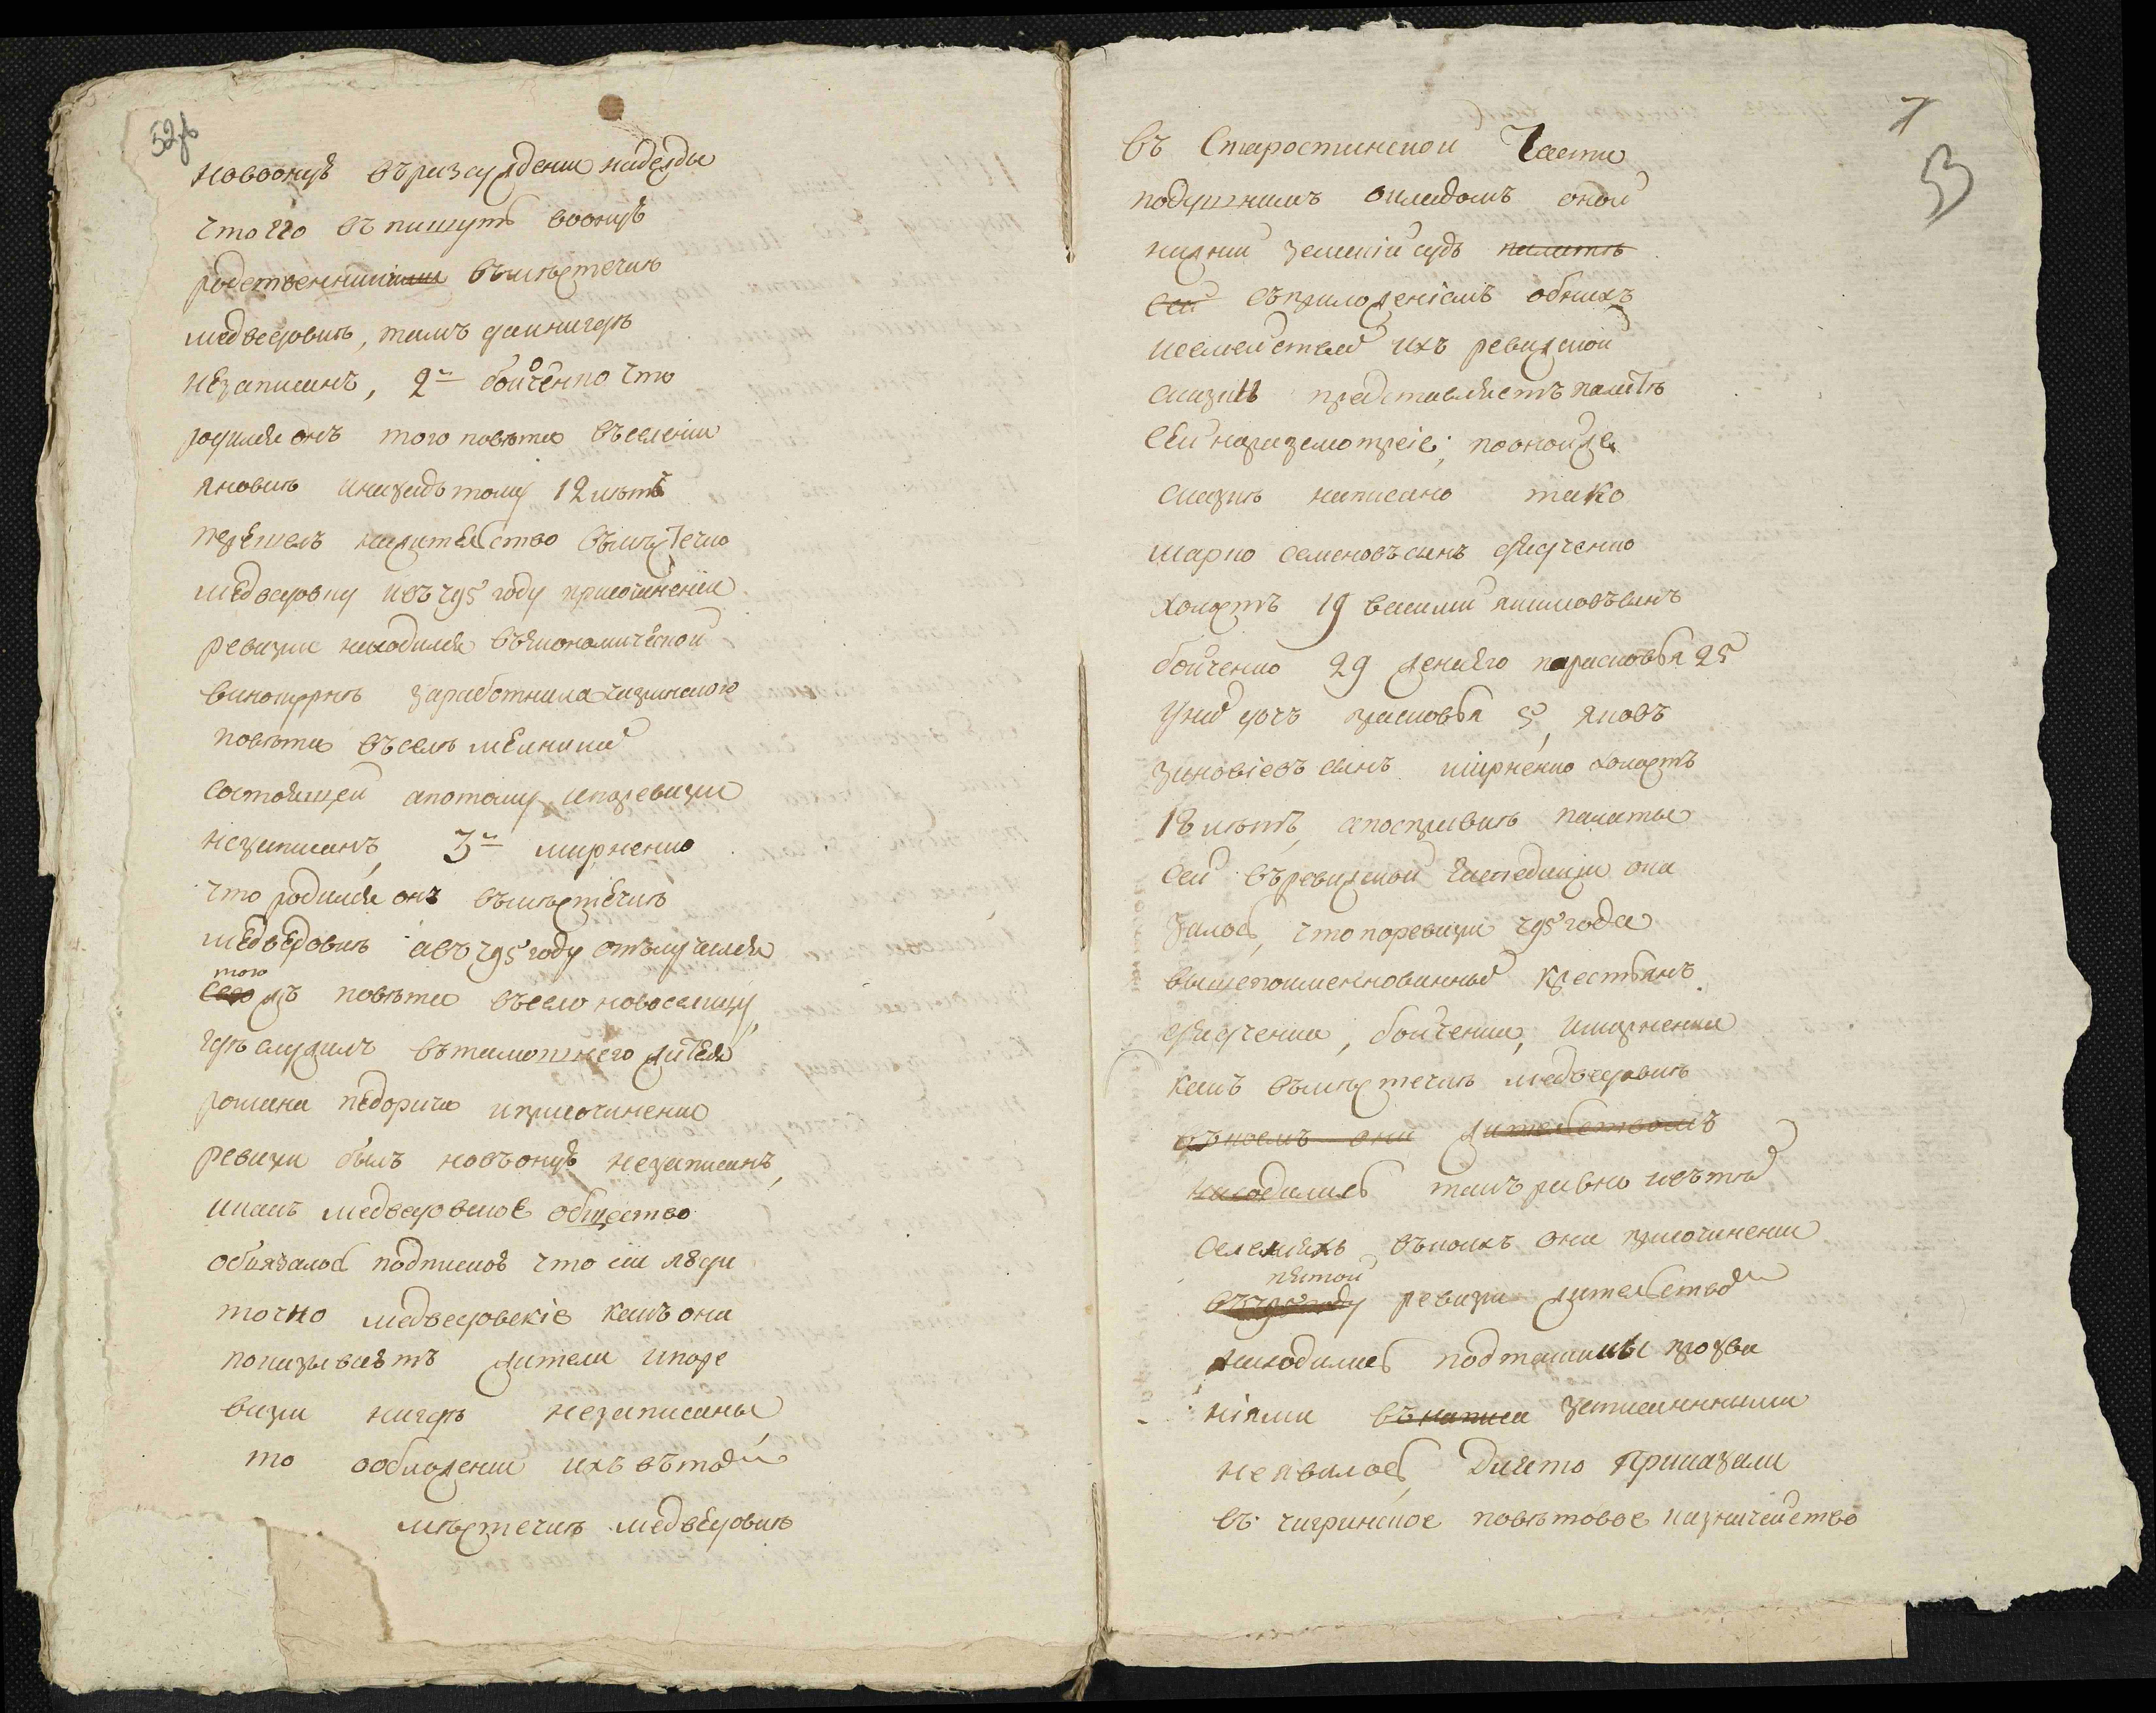 52об
но воонуѣ въ разсуждении надежды
что его въ пишутъ воонуѣ
родственникими въ мѣстечкѣ
медведовкѣ, тамъ да и нигдѣ
незаписанъ, 2й бойченко что
родился онъ того повѣта въ селении
яновкѣ и назадъ тому 12 лѣтъ
перешелъ на жительство въ мѣстечко
медведовку и въ 795 году при сочинении
ревизии находился въ экономической
винокурнѣ за работника чигринского
повѣта въ селѣ мелникой
состоящей а потому и по ревизии
незаписанъ, 3й ширненко
что родился онъ въ мѣстечкѣ
медведовкѣ а въ 795 году отлучился
того
сего жъ повѣта въ село новоселицу,
где служилъ въ тамошнего жителя
романа педорича и при сочинении
ревизии былъ но въ онуѣ незаписанъ,
и какъ медведовское общество
обязалось подпискоѣ что сии люди
точно медведовские какъ они
показываютъ жители и по ре
визии нигдѣ незаписаны
то о обложении ихъ въ той
мѣстечкѣ медведовкѣ
7
53
въ Старостинской Части
подушнимъ окладомъ оной
нижний земский судъ палатѣ
сей съ приложениемъ обихъ
и семействах ихъ ревизской
сказки представляетъ палатѣ
сей на разсмотрение; по оной же
сказкѣ написано тако
марко семеновъ сынъ
холостъ 19 василий якимовъ сынъ
бойченко 29 жена его парасковья 25
у них дочь прасковья 5, яковъ
зиновиевъ сынъ ширненко холостъ
18 лѣтъ, а по справкѣ палаты
сей въ ревизской экспедиции ока
залось, что по ревизии 795 года
вышепоименнованных крестьянъ
бойченка, и ширненка
какъ въ мѣстечкѣ медведовкѣ
въ коемъ они жительствомъ
находились такъ равно и въ тѣх
селенияхъ въ коихъ они при сочинении
пятой
въ 795 году ревизии жительством
находились под такими прозва
ниями въ написа записанными
не явилось, Для чего Приказали
въ чигринское повѣтовое казначейство